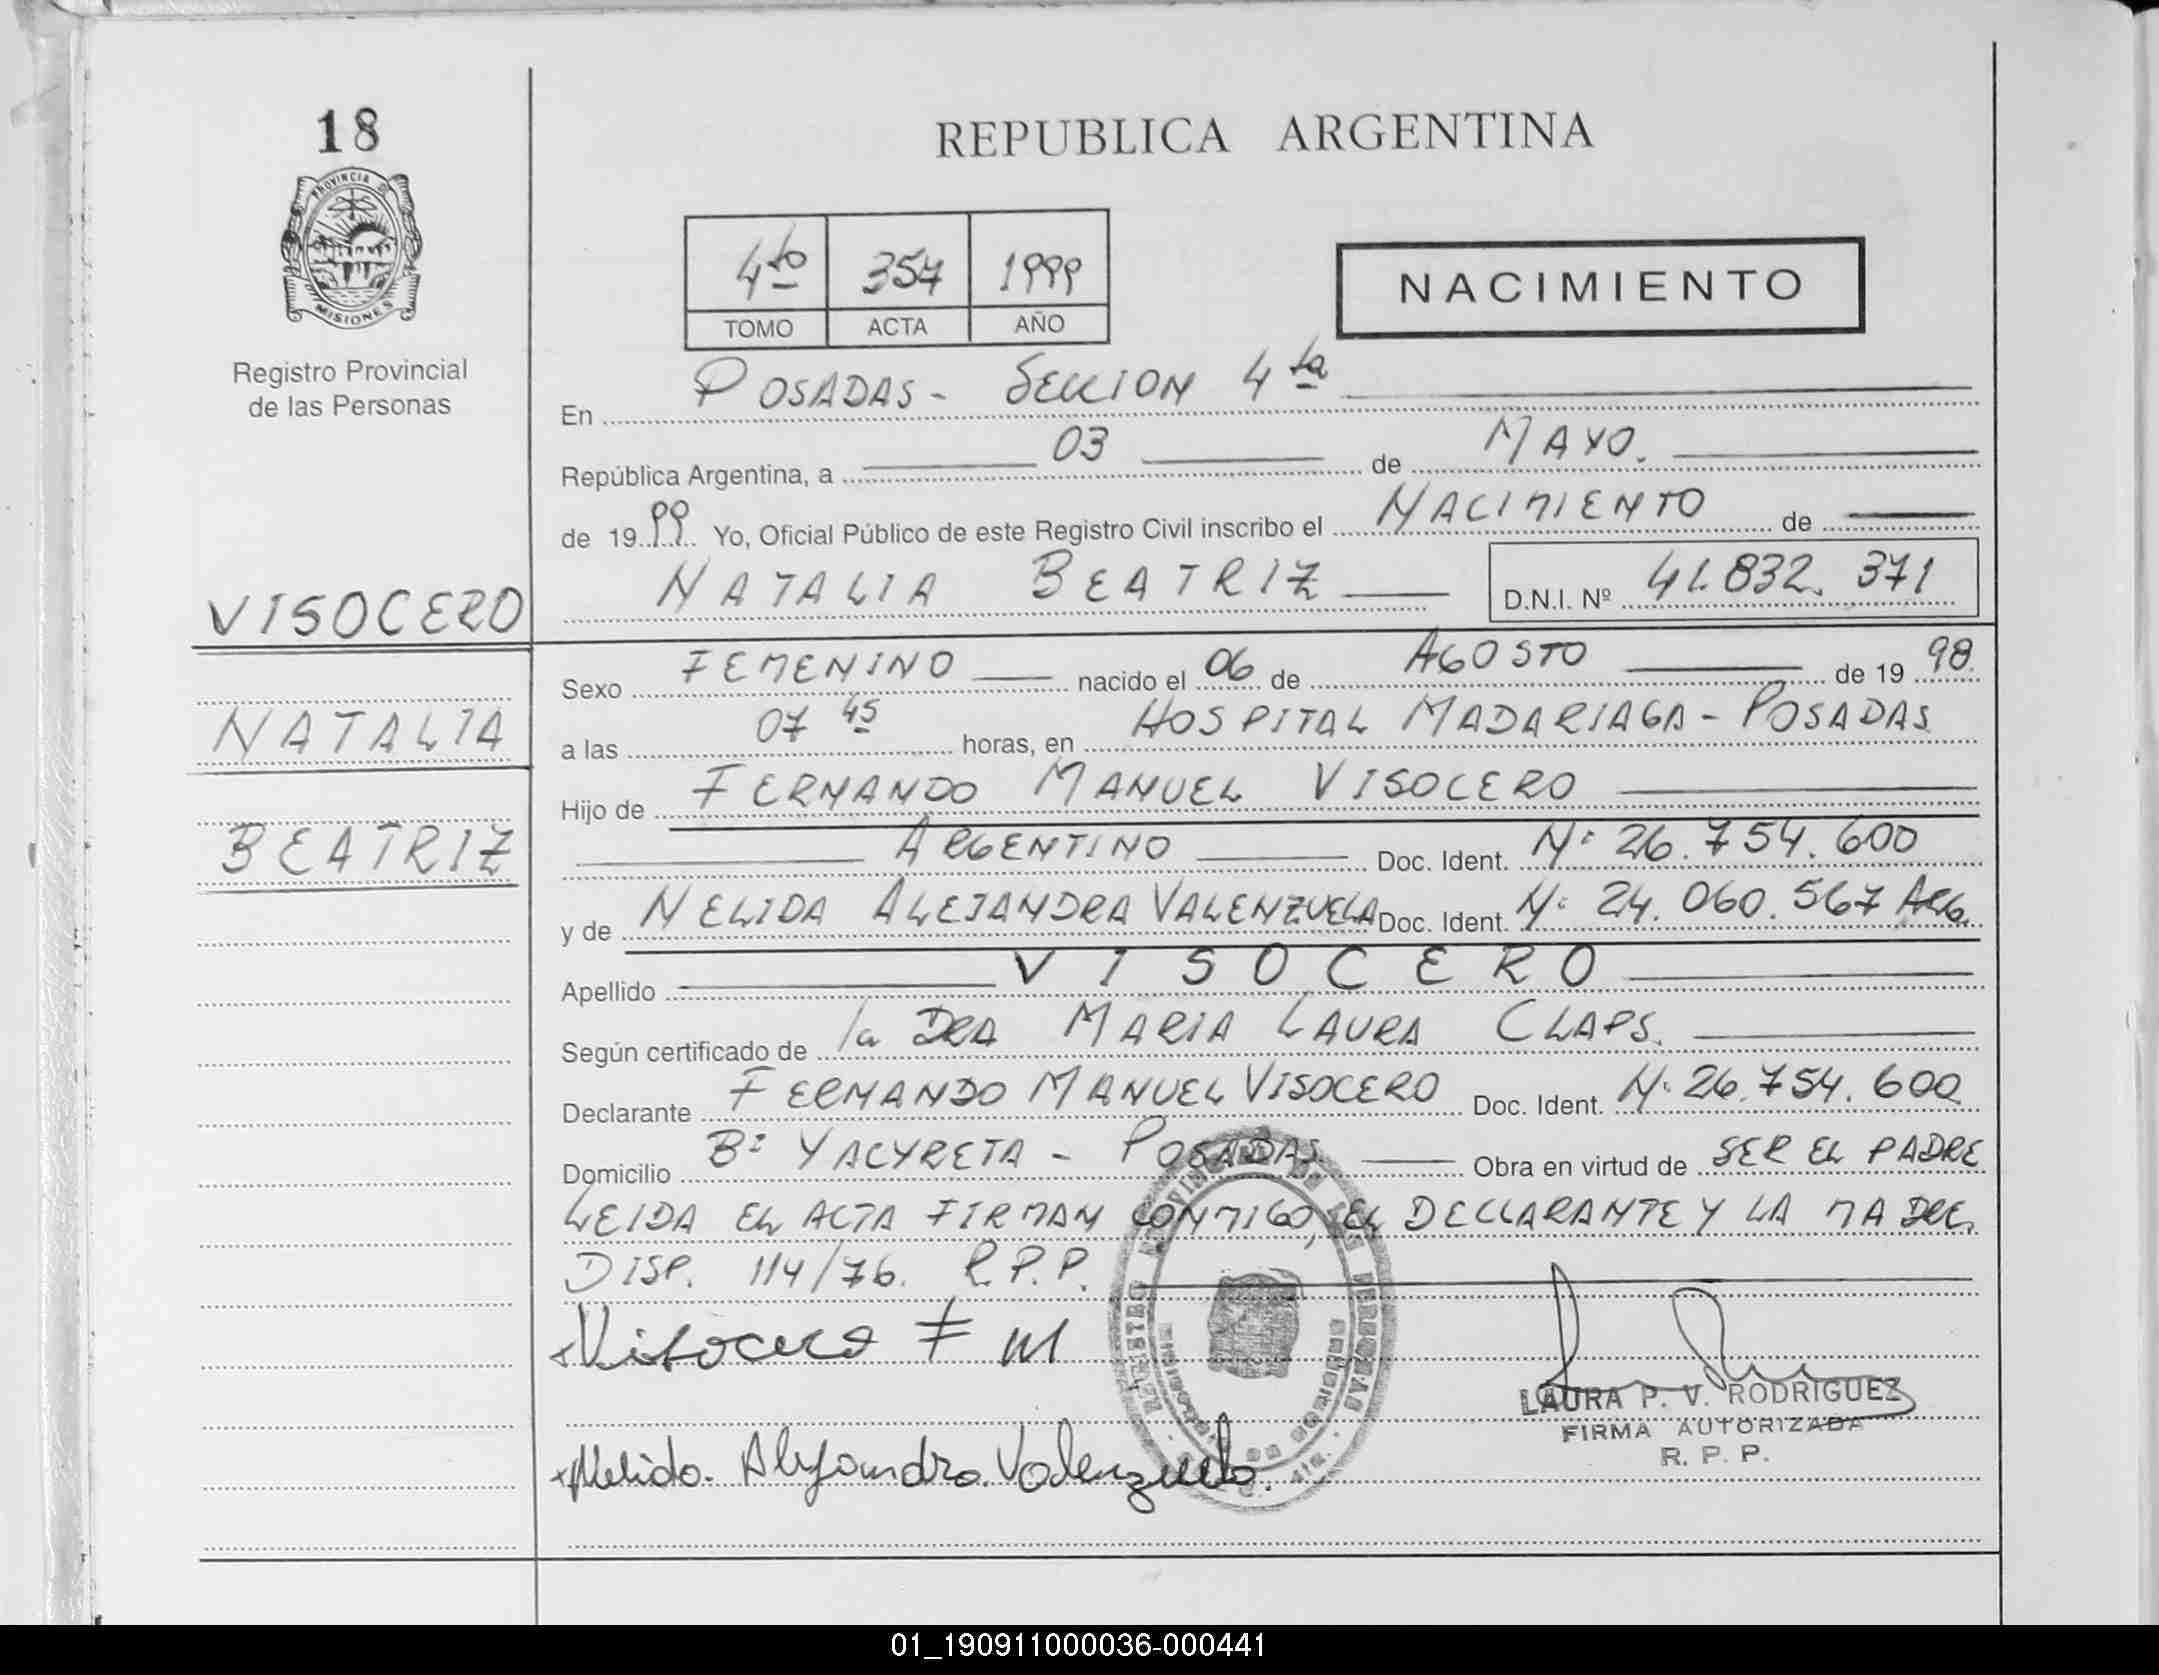 18
PROVINCIA DE
MISIONES
Registro Provincial
de las Personas
VISOCERO
NATALIA
BEATRIZ
REPUBLICA ARGENTINA
4to 357 1999
TOMO ACTA AÑO
NACIMIENTO
En POSADAS - SECCION 4ta
República Argentina, a 03 de MAYO.
de 1999 Yo, Oficial Público de este Registro Civil inscribo el NACIMIENTO de
NATALIA BEATRIZ D.N.I. Nº 41.832.371
Sexo FEMENINO nacido el 06 de AGOSTO de 1998.
a las 07 45 horas, en HOSPITAL MADARIAGA - POSADAS
Hijo de FERNANDO MANUEL VISOCERO
ARGENTINO Doc. Ident. N: 26.754.600
y de NELIDA ALEJANDRA VALENZUELA Doc. Ident. N: 24.060.567 ARG.
Apellido VISOCERO
Según certificado de la DRA MARIA LAURA CLAPS.
Declarante FERNANDO MANUEL VISOCERO Doc. Ident. N: 26.754.600
Domicilio Bº YACYRETA - POSADAS Obra en virtud de SER EL PADRE
LEIDA EL ACTA FIRMAN CONMIGO, EL DECLARANTE Y LA MADRE.
DISP. 114/76. R.P.P.
Visocero F M
Nelida Alejandra Valenzuela.
LAURA P. V. RODRIGUEZ
FIRMA AUTORIZADA
R. P. P.
01_190911000036-000441